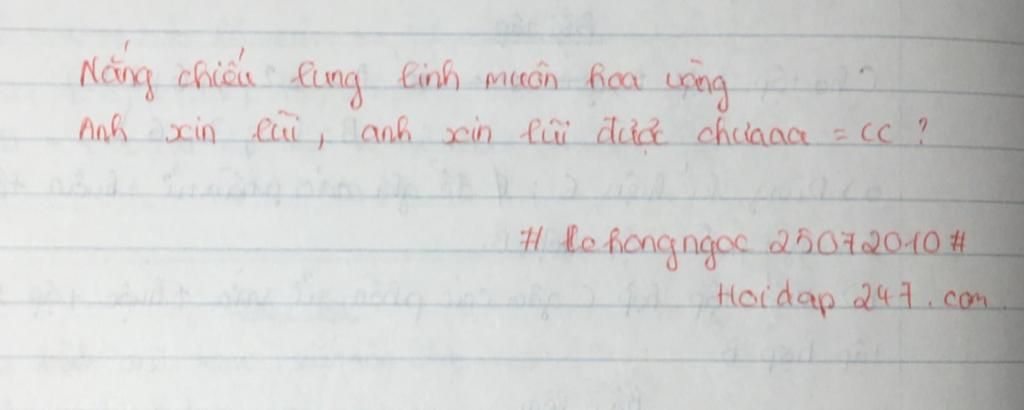 Nắng chiếu lung linh muôn hoa vàng
Anh xin lũi, anh xin lũi được chưaaa = cc ?
# lehongngoc 25072010 #
Hoidap 247. com